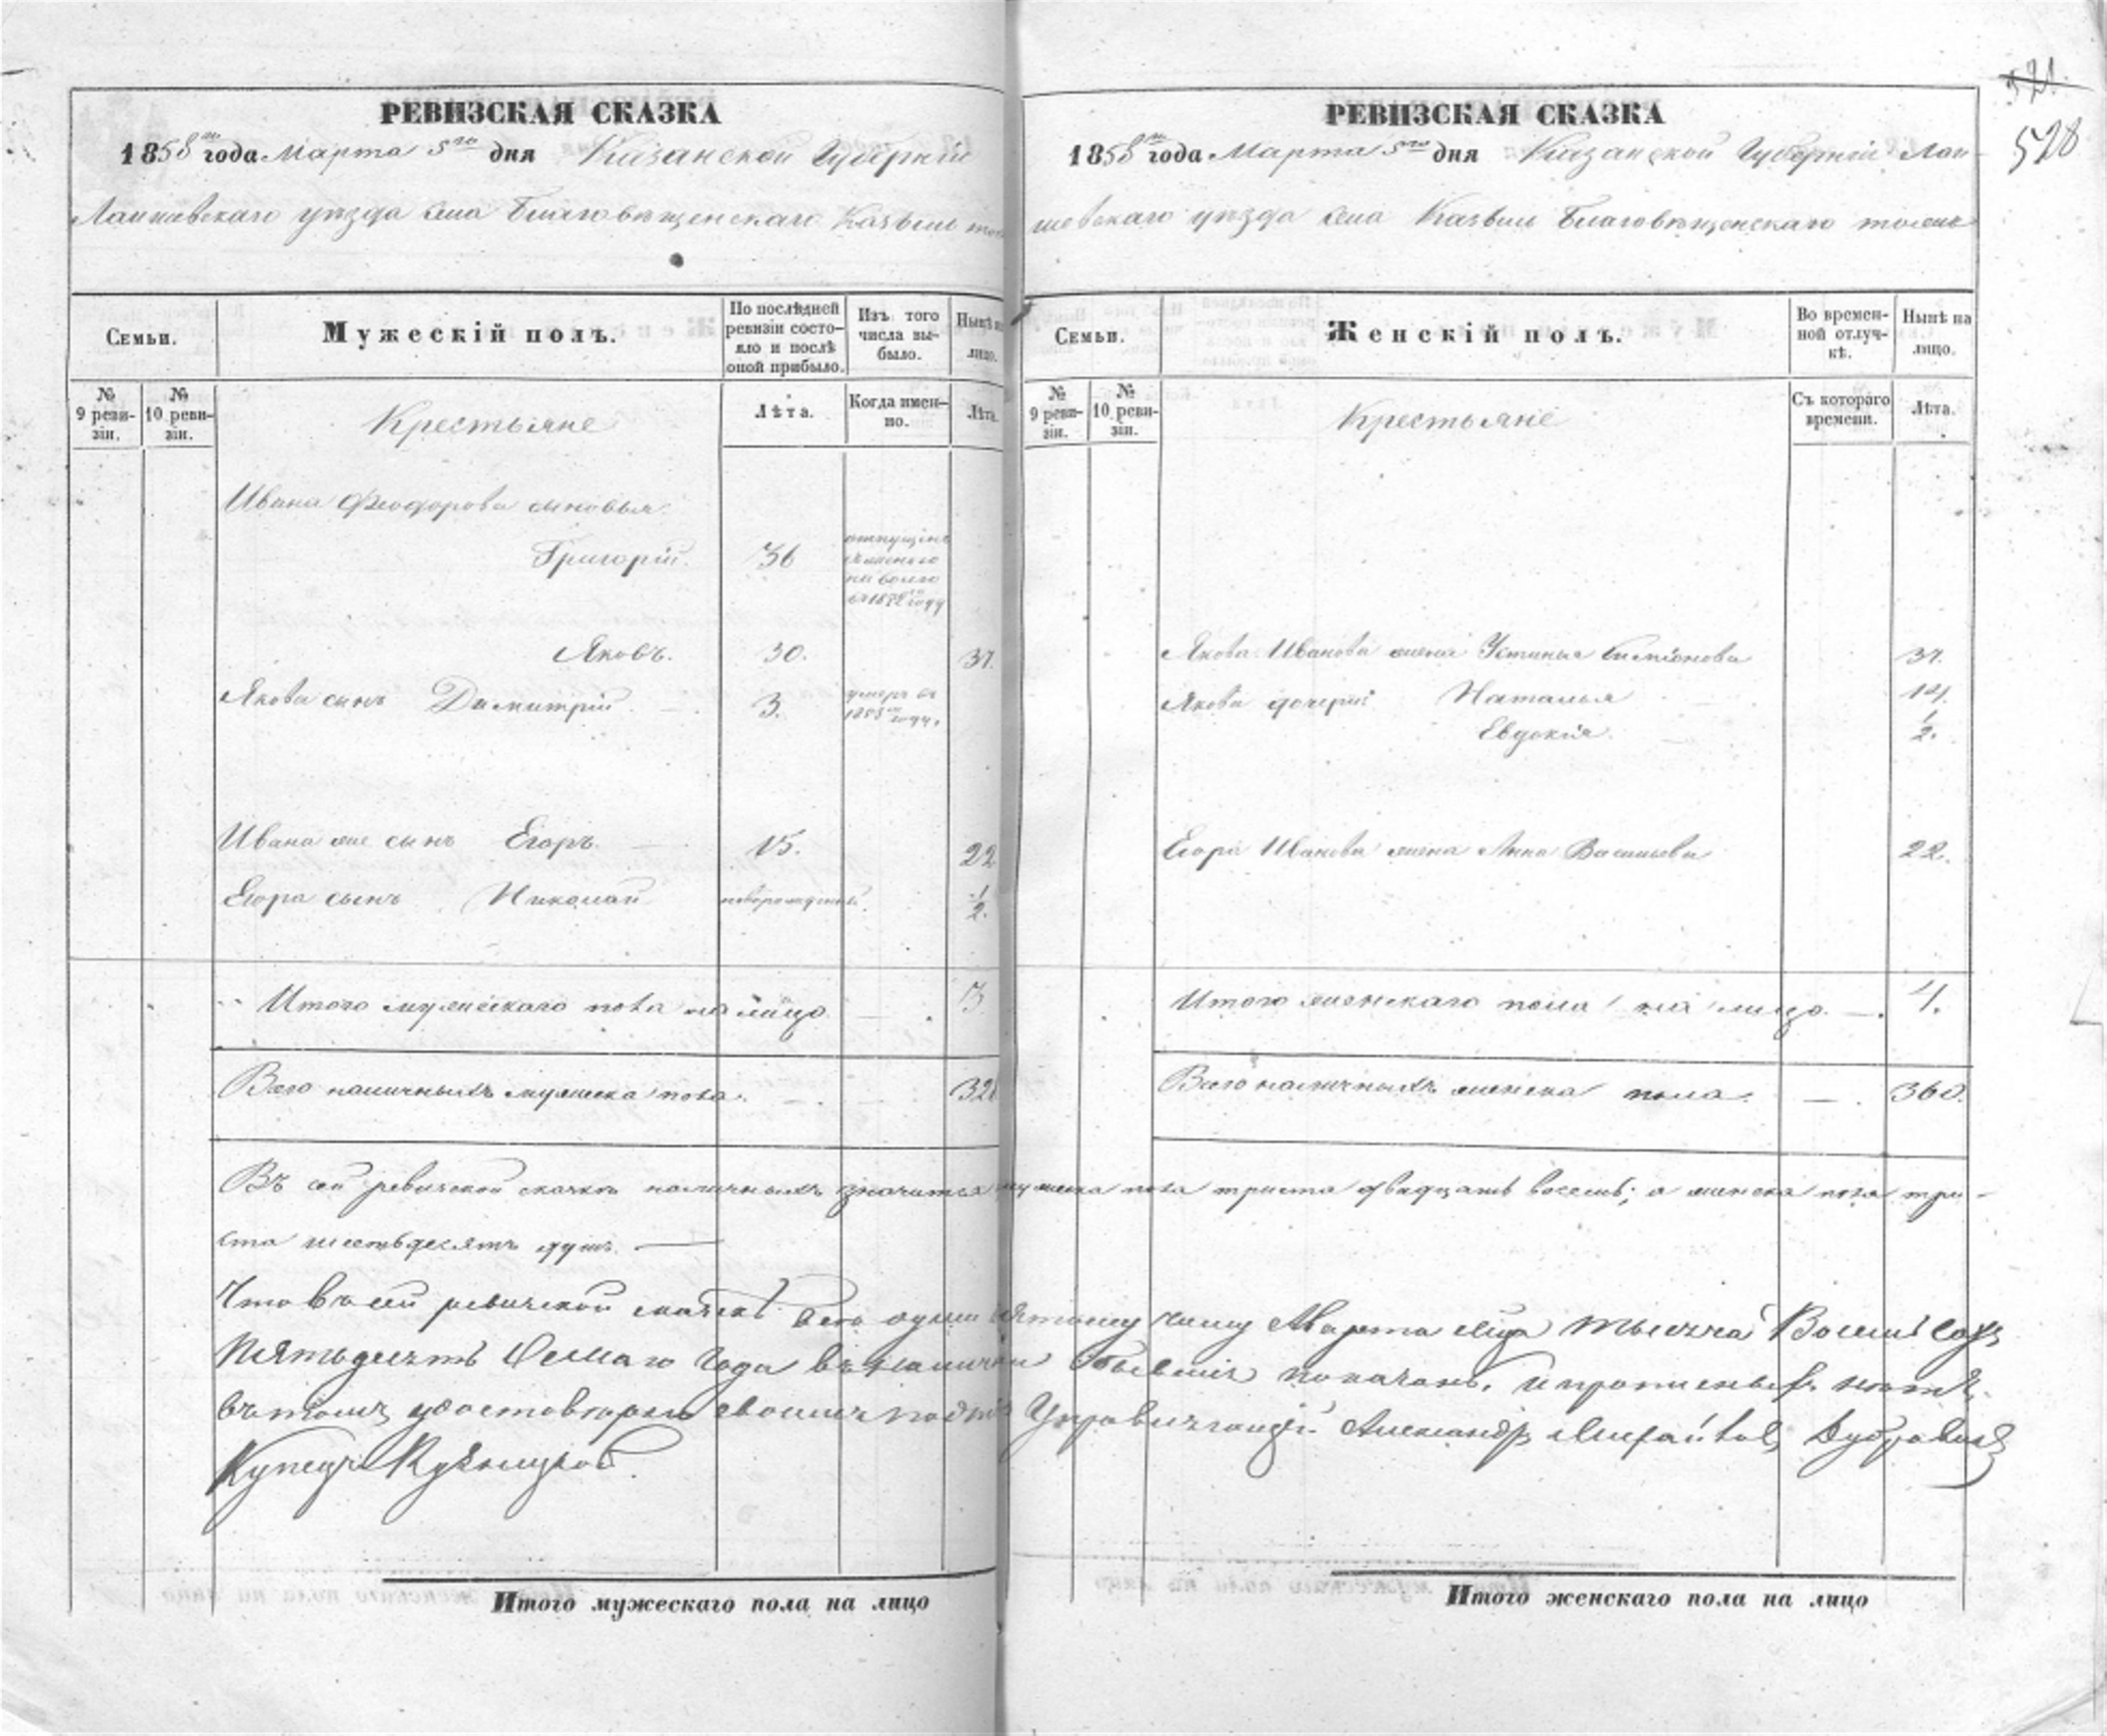 РЕВИЗСКАЯ СКАЗКА
1858го года Марта 5го дня Казанской Губерніи
Лаишевскаго уѣзда села Благовѣщенскаго Казыли
Семьи.
Мужескій полъ.
По послѣдней ревизіи состо-
яло и послѣ
оной прибыло.
Изъ того
числа вы-
было.
Нынѣ на
лицо.
№
9 реви-
зіи.
№
10 реви-
зіи.
Крестьяне
Лѣта.
Когда имен-
но.
Лѣта.
Ивана Феодорова сыновья
Григорій. 36
отпущенъ
на волю
Яковъ. 30. 37.
Якова сынъ Димитрій. 3. умеръ въ
году.
Ивана же сынъ Егоръ 15. 22
Егора сынъ Николай новорожденный. 1/2.
Итого мужескаго пола на лицо 3
Всего наличныхъ мужска пола. 328
РЕВИЗСКАЯ СКАЗКА
1858го года Марта 5го дня Казанской Губерніи Лаи-
шевскаго уѣзда села Казыли Благовѣщенскаго тожъ
521.
528
Семьи.
Женскій полъ.
Во времен-
ной отлуч-
кѣ.
Нынѣ на
лицо.
№
9 реви-
зіи.
№
10 реви-
зіи.
Крестьяне
Съ котораго
времени.
Лѣта.
Якова Иванова жена Устинья Симіонова 37.
Якова дочери: Наталья 14.
Евдокія. 1/2.
Егора Иванова жена Анна Васильева 22.
Итого женскаго пола на лицо. 4.
Всего наличныхъ женска пола. 360.
Въ сей ревизской сказкѣ наличныхъ значится мужска пола триста двадцать восемь; а женска пола три-
ста шестьдесятъ душъ.
Что въ сей ревизской сказкѣ Марта тысяча Восемь сотъ
Пятьдесятъ Осьмаго года въ наличіи показаны, и прописныхъ нѣтъ,
въ томъ удостовѣряю Управляющій Александръ Михайловъ
Купецъ
Итого мужескаго пола на лицо
Итого женскаго пола на лицо